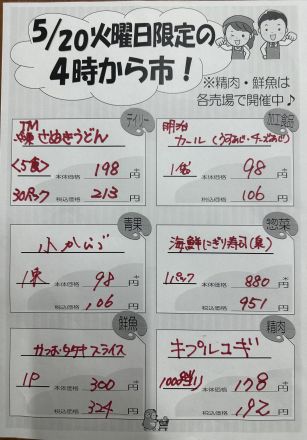 5/20火曜日限定の
4時から市!
※精肉・鮮魚は
各売場で開催中♪
デイリー
TM
さぬきうどん
〈5食〉
本体価格 198 円
30パック
税込価格 213 円
加工食品
明治
カール(うすあじ・チーズあじ)
1袋
本体価格 98 円
税込価格 106 円
青果
小かぶ
1束
本体価格 98 円
税込価格 106 円
惣菜
海鮮にぎり寿司(泉)
1パック
本体価格 880 円
税込価格 951 円
鮮魚
かつおタタキ スライス
1P
本体価格 300 円
税込価格 324 円
精肉
牛プルコギ
100g当り
本体価格 178 円
税込価格 192 円